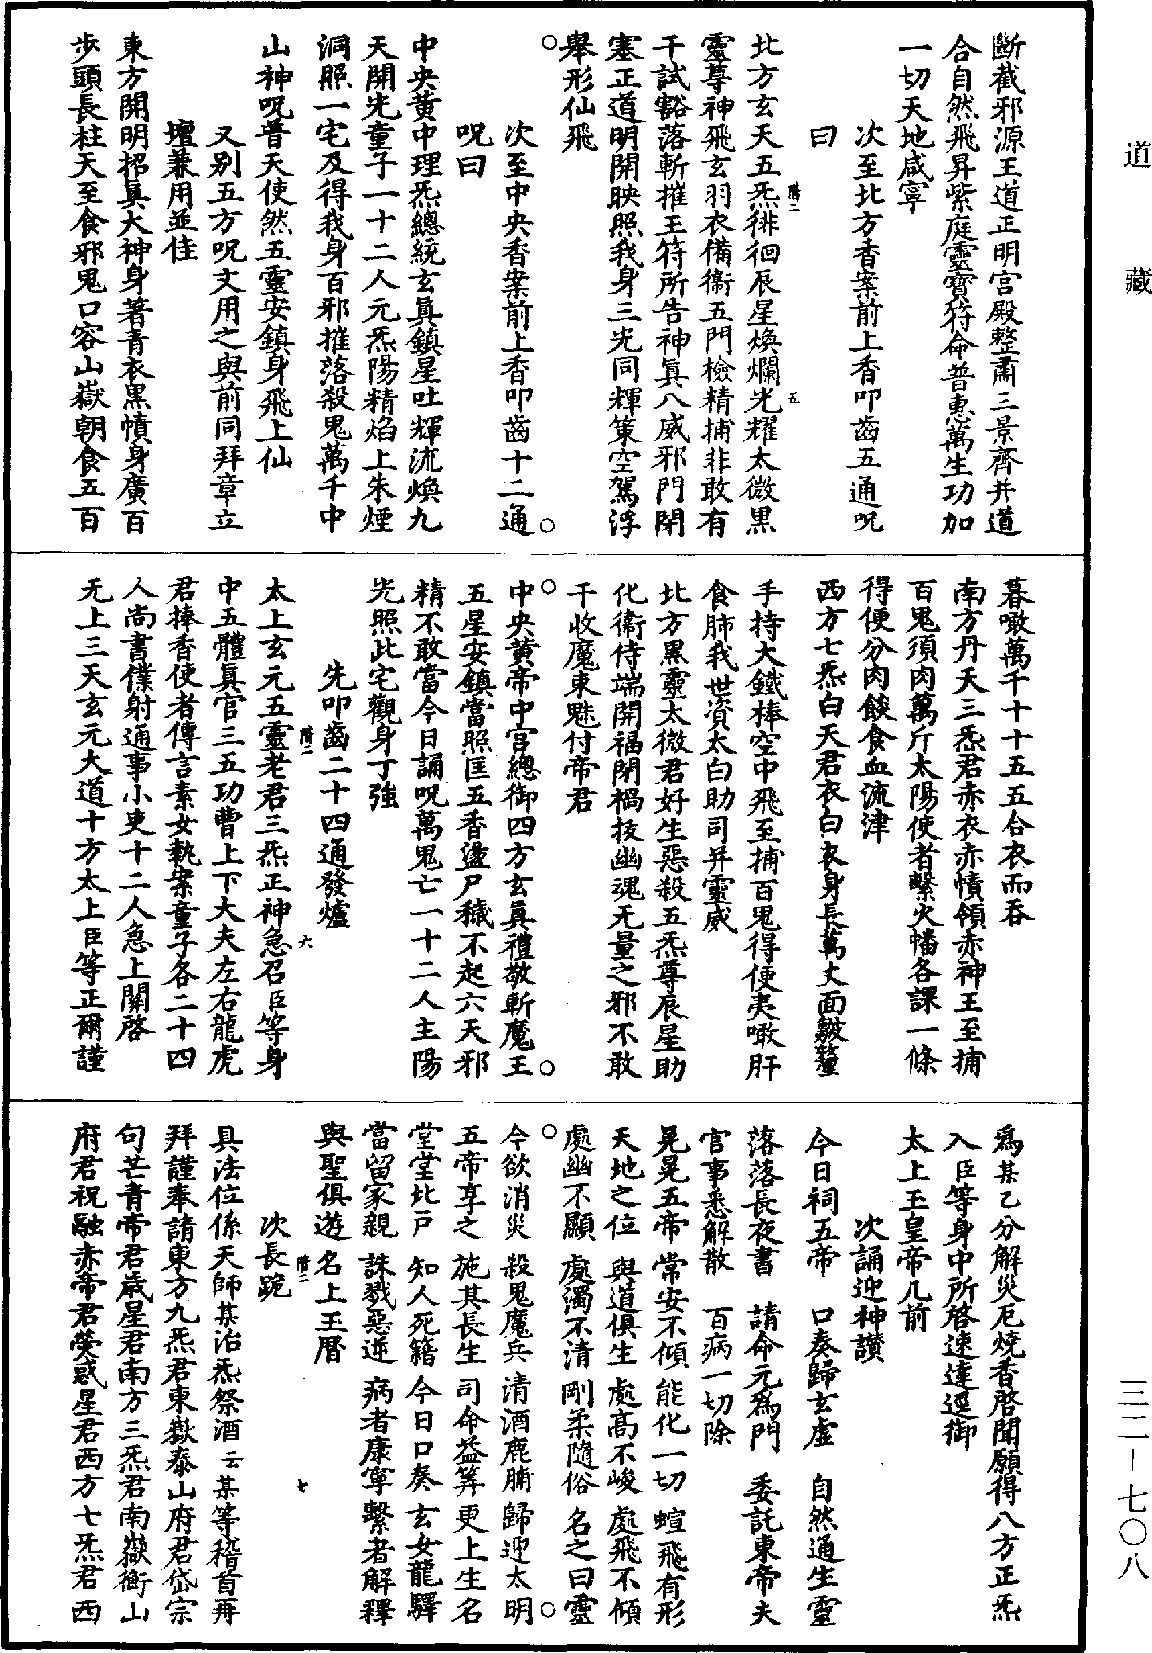 道藏
斷截邪源王道正明宮殿整肅三景齊并道
合自然飛昇紫庭靈寶符命普惠萬生功加
一切天地咸寧
次至北方香案前上香叩齒五通呪
曰
北方玄天五炁徘徊辰星煥爛光耀太微黑
靈尊神飛玄羽衣備衞五門檢精捕非敢有
干試豁落斬摧王符所告神真八威邪門閉
塞正道明開映照我身三光同輝策空駕浮
舉形仙飛
次至中央香案前上香叩齒十二通
呪曰
中央黃中理炁總統玄真鎮星吐輝流煥九
天開光童子一十二人元炁陽精焰上朱煙
洞照一宅及得我身百邪摧落殺鬼萬千中
山神呪普天使然五靈安鎮身飛上仙
又別五方呪文用之與前同拜章立
壇兼用並佳
東方開明招真大神身著青衣黑幘身廣百
步頭長柱天至食邪鬼口容山嶽朝食五百
暮噉萬千十十五五合衣而吞
南方丹天三炁君赤衣赤幘領赤神王至捕
百鬼須肉萬斤太陽使者繫火幡各課一條
得便分肉餤食血流津
西方七炁白天君衣白衣身長萬丈面皺𪍿
手持大鐵棒空中飛至捕百鬼得便夷噉肝
食肺我世資太白助司并靈威
北方黑靈太微君好生惡殺五炁尊辰星助
化衞侍端開福閉禍技幽魂无量之邪不敢
干收魔束魅付帝君
中央黃帝中宮總御四方玄真禮敬斬魔王
五星安鎮當照匡五香盪尸穢不起六天邪
精不敢當今日誦呪萬鬼亡一十二人主陽
光照此宅觀身丁強
先叩齒二十四通發爐
太上玄元五靈老君三炁正神急召臣等身
中五體真官三五功曹上下大夫左右龍虎
君捧香使者傳言素女執案童子各二十四
人尚書僕射通事小吏十二人急上關啓
无上三天玄元大道十方太上臣等正爾謹
爲某乙分解災厄燒香啓聞願得八方正炁
入臣等身中所啓速達逕御
太上玉皇帝几前
次誦迎神讚
今日祠五帝　口奏歸玄虛　自然通生靈
落落長夜書　請命元爲門　委託東帝夫
官事悉解散　百病一切除
晃晃五帝　常安不傾　能化一切　蝖飛有形
天地之位　與道俱生　處高不峻　處飛不傾
處幽不顯　處濁不清　剛柔隨俗　名之曰靈
今欲消災　殺鬼魔兵　清酒鹿脯　歸迎太明
五帝享之　施其長生　司命益筭　更上生名
堂堂北戸　知人死籍　今日口奏　玄女龍驛
當留家親　誅戮惡逆　病者康寧　繫者解釋
與聖俱遊　名上玉曆
次長跪
具法位係天師某治炁祭酒云某等稽首再
拜謹奉請東方九炁君東嶽泰山府君岱宗
句芒青帝君歲星君南方三炁君南嶽衡山
府君祝融赤帝君熒惑星君西方七炁君西
三二－七〇八